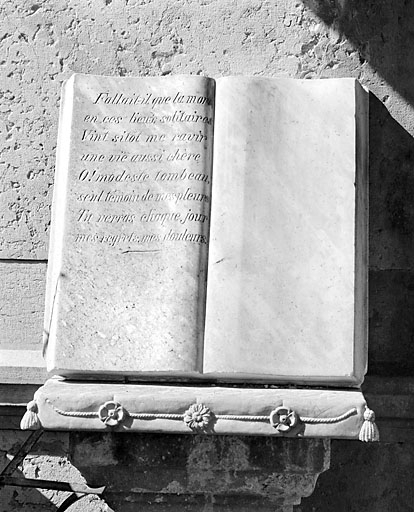 Fallait il que la mort
en ces lieux solitaires
Vint sitot me ravir
une vie aussi chère
O! modeste tombeau,
seul témoin de mes pleurs
Tu verras chaque jour
mes regrets, mes douleurs.